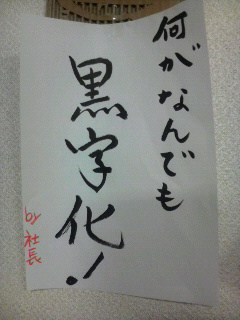 何がなんでも
黒字化!
by 社長